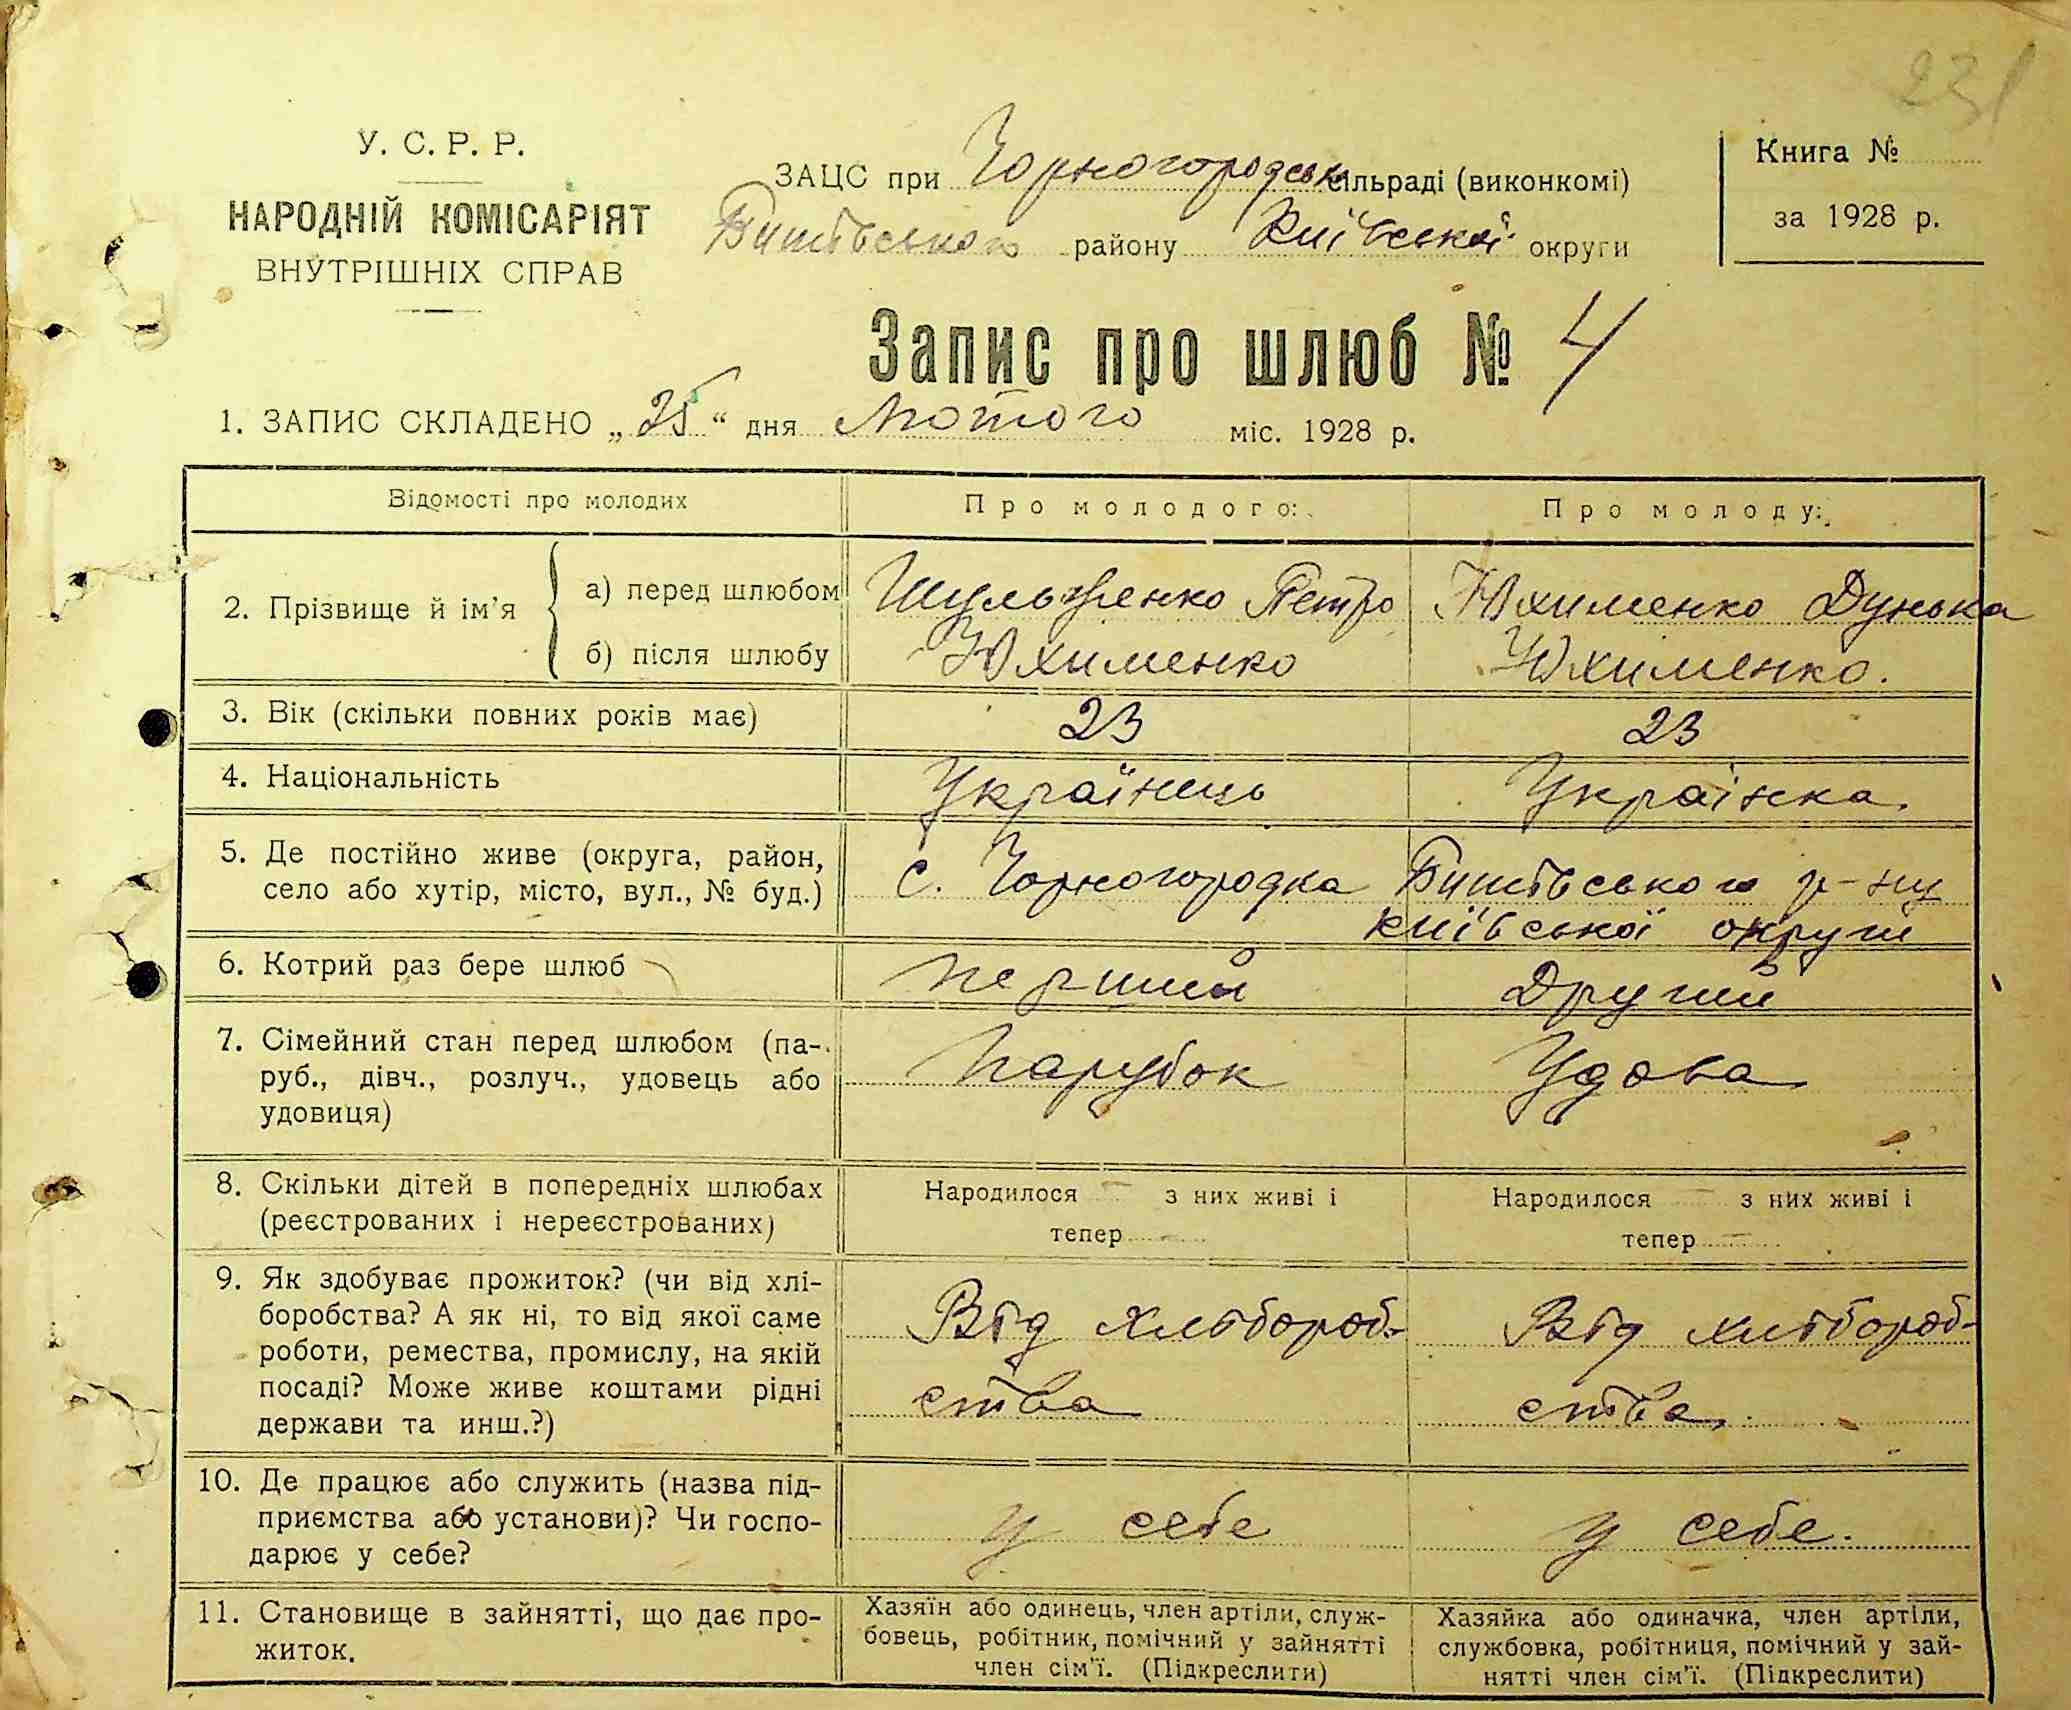 231
У. С. Р. Р.
НАРОДНІЙ КОМІСАРІЯТ
ВНУТРІШНІХ СПРАВ
ЗАЦС при Чорногородськ сільраді (виконкомі)
Бишівського району Київської округи
Книга №
за 1928 р.
Запис про шлюб № 4
1. ЗАПИС СКЛАДЕНО „25“ дня Лютого міс. 1928 р.
Відомості про молодих
Про молодого:
Про молоду:
2. Прізвище й ім'я
а) перед шлюбом
Шульженко Петро
Юхименко Дунька
б) після шлюбу
Юхименко
Юхименко.
3. Вік (скільки повних років має)
23
23
4. Національність
Українець
Українка.
5. Де постійно живе (округа, район,
село або хутір, місто, вул., № буд.)
с. Чорногородка Бишівського р-ну
київської округи
6. Котрий раз бере шлюб
перший
Другий
7. Сімейний стан перед шлюбом (па-
руб., дівч., розлуч., удовець або
удовиця)
Парубок
Удова
8. Скільки дітей в попередніх шлюбах
(реєстрованих і нереєстрованих)
Народилося — з них живі і
тепер —
Народилося — з них живі і
тепер —
9. Як здобуває прожиток? (чи від хлі-
боробства? А як ні, то від якої саме
роботи, ремества, промислу, на якій
посаді? Може живе коштами рідні
держави та инш.?)
Від хлібороб-
ства
Від хлібороб-
ства.
10. Де працює або служить (назва під-
приємства або установи)? Чи госпо-
дарює у себе?
у себе
у себе.
11. Становище в зайнятті, що дає про-
житок.
Хазяїн або одинець, член артіли, служ-
бовець, робітник, помічний у зайнятті
член сім'ї. (Підкреслити)
Хазяйка або одиначка, член артіли,
службовка, робітниця, помічний у зай-
нятті член сім'ї. (Підкреслити)